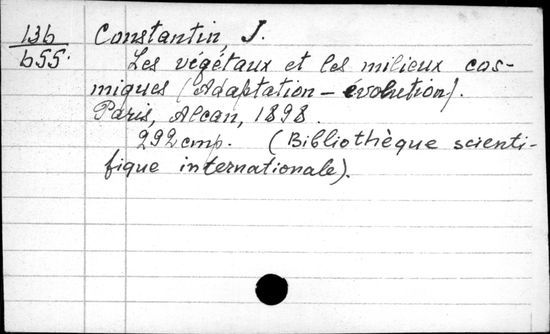 136 Constantin J.
655. Les végétaux et les milieux cos-
miques (Adaptation – évolution).
Paris, Alcan, 1898.
292 cmp. (Bibliothèque scienti-
fique internationale).